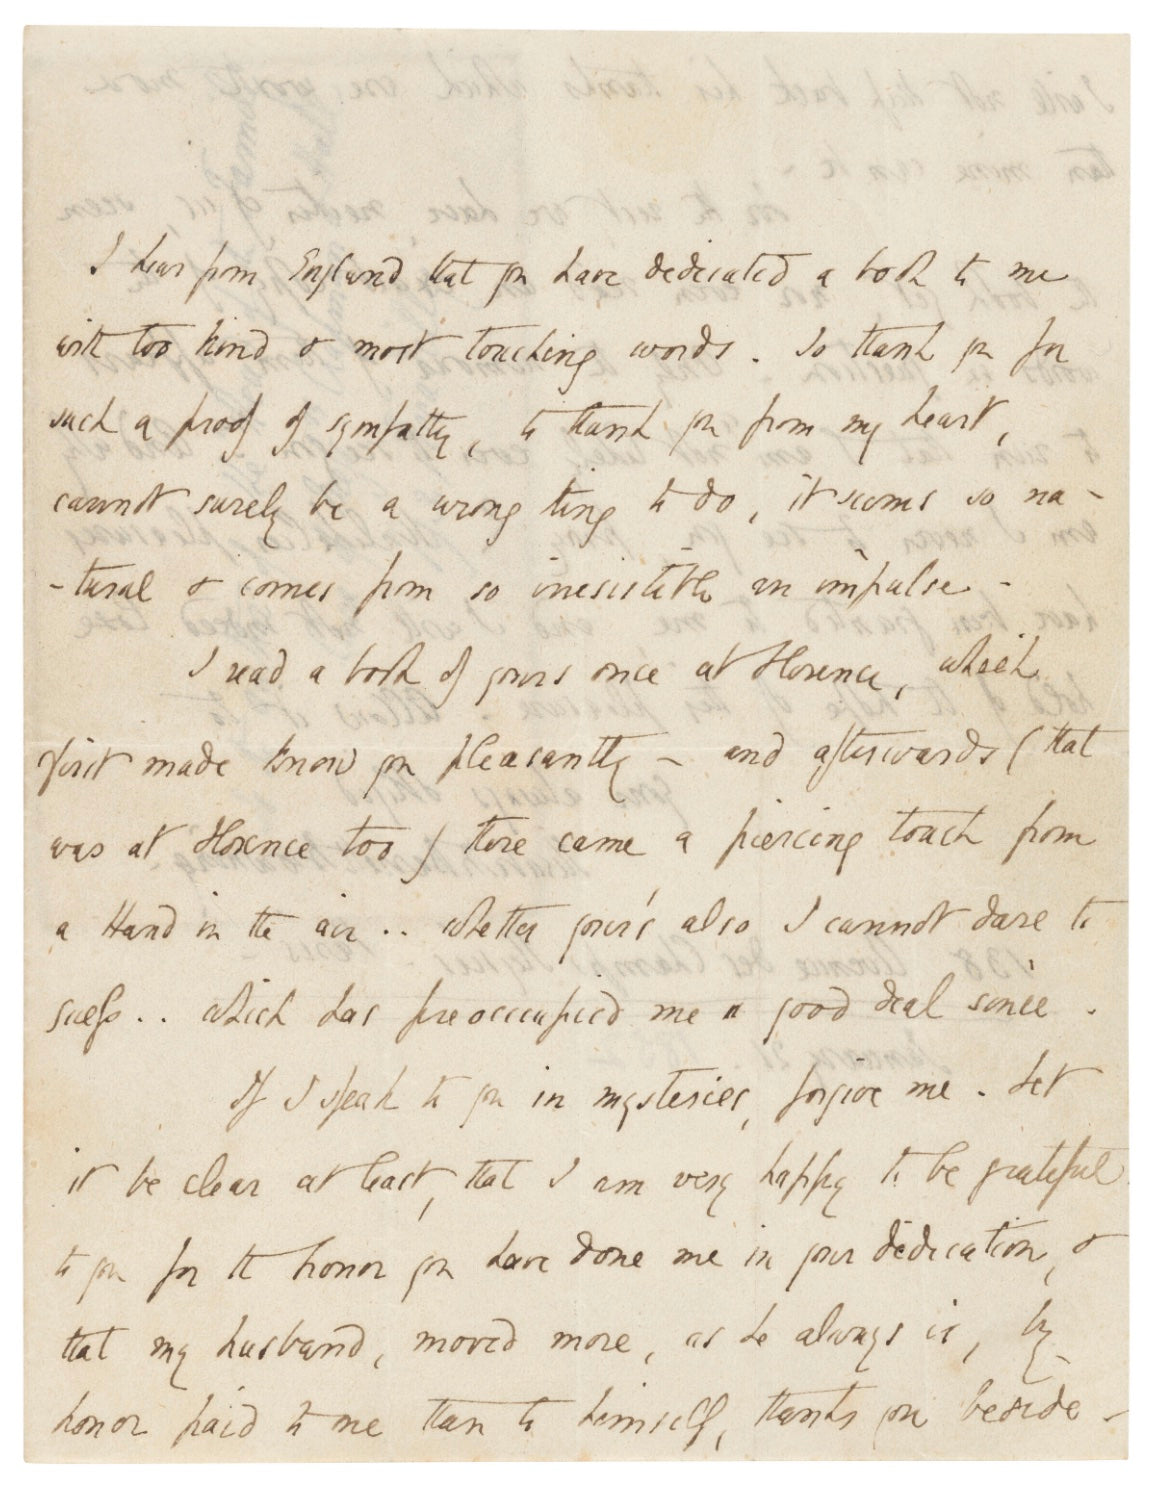 I hear from England that you have dedicated a book to me
with too kind & most touching words. To thank you for
such a proof of sympathy, to thank you from my heart,
cannot surely be a wrong thing to do, it seems so na-
-tural & comes from so irresistible an impulse -
I read a book of yours once at Florence, which
first made know you pleasantly - and afterwards (that
was at Florence too) there came a piercing touch from
a Hand in the air .. whether your's also I cannot dare to
guess .. which has preoccupied me a good deal since.
If I speak to you in mysteries, forgive me. Let
it be clear at least, that I am very happy to be grateful
to you for the honor you have done me in your dedication, &
that my husband, moved more, as he always is, by
honor paid to me than to himself, thanks you beside -